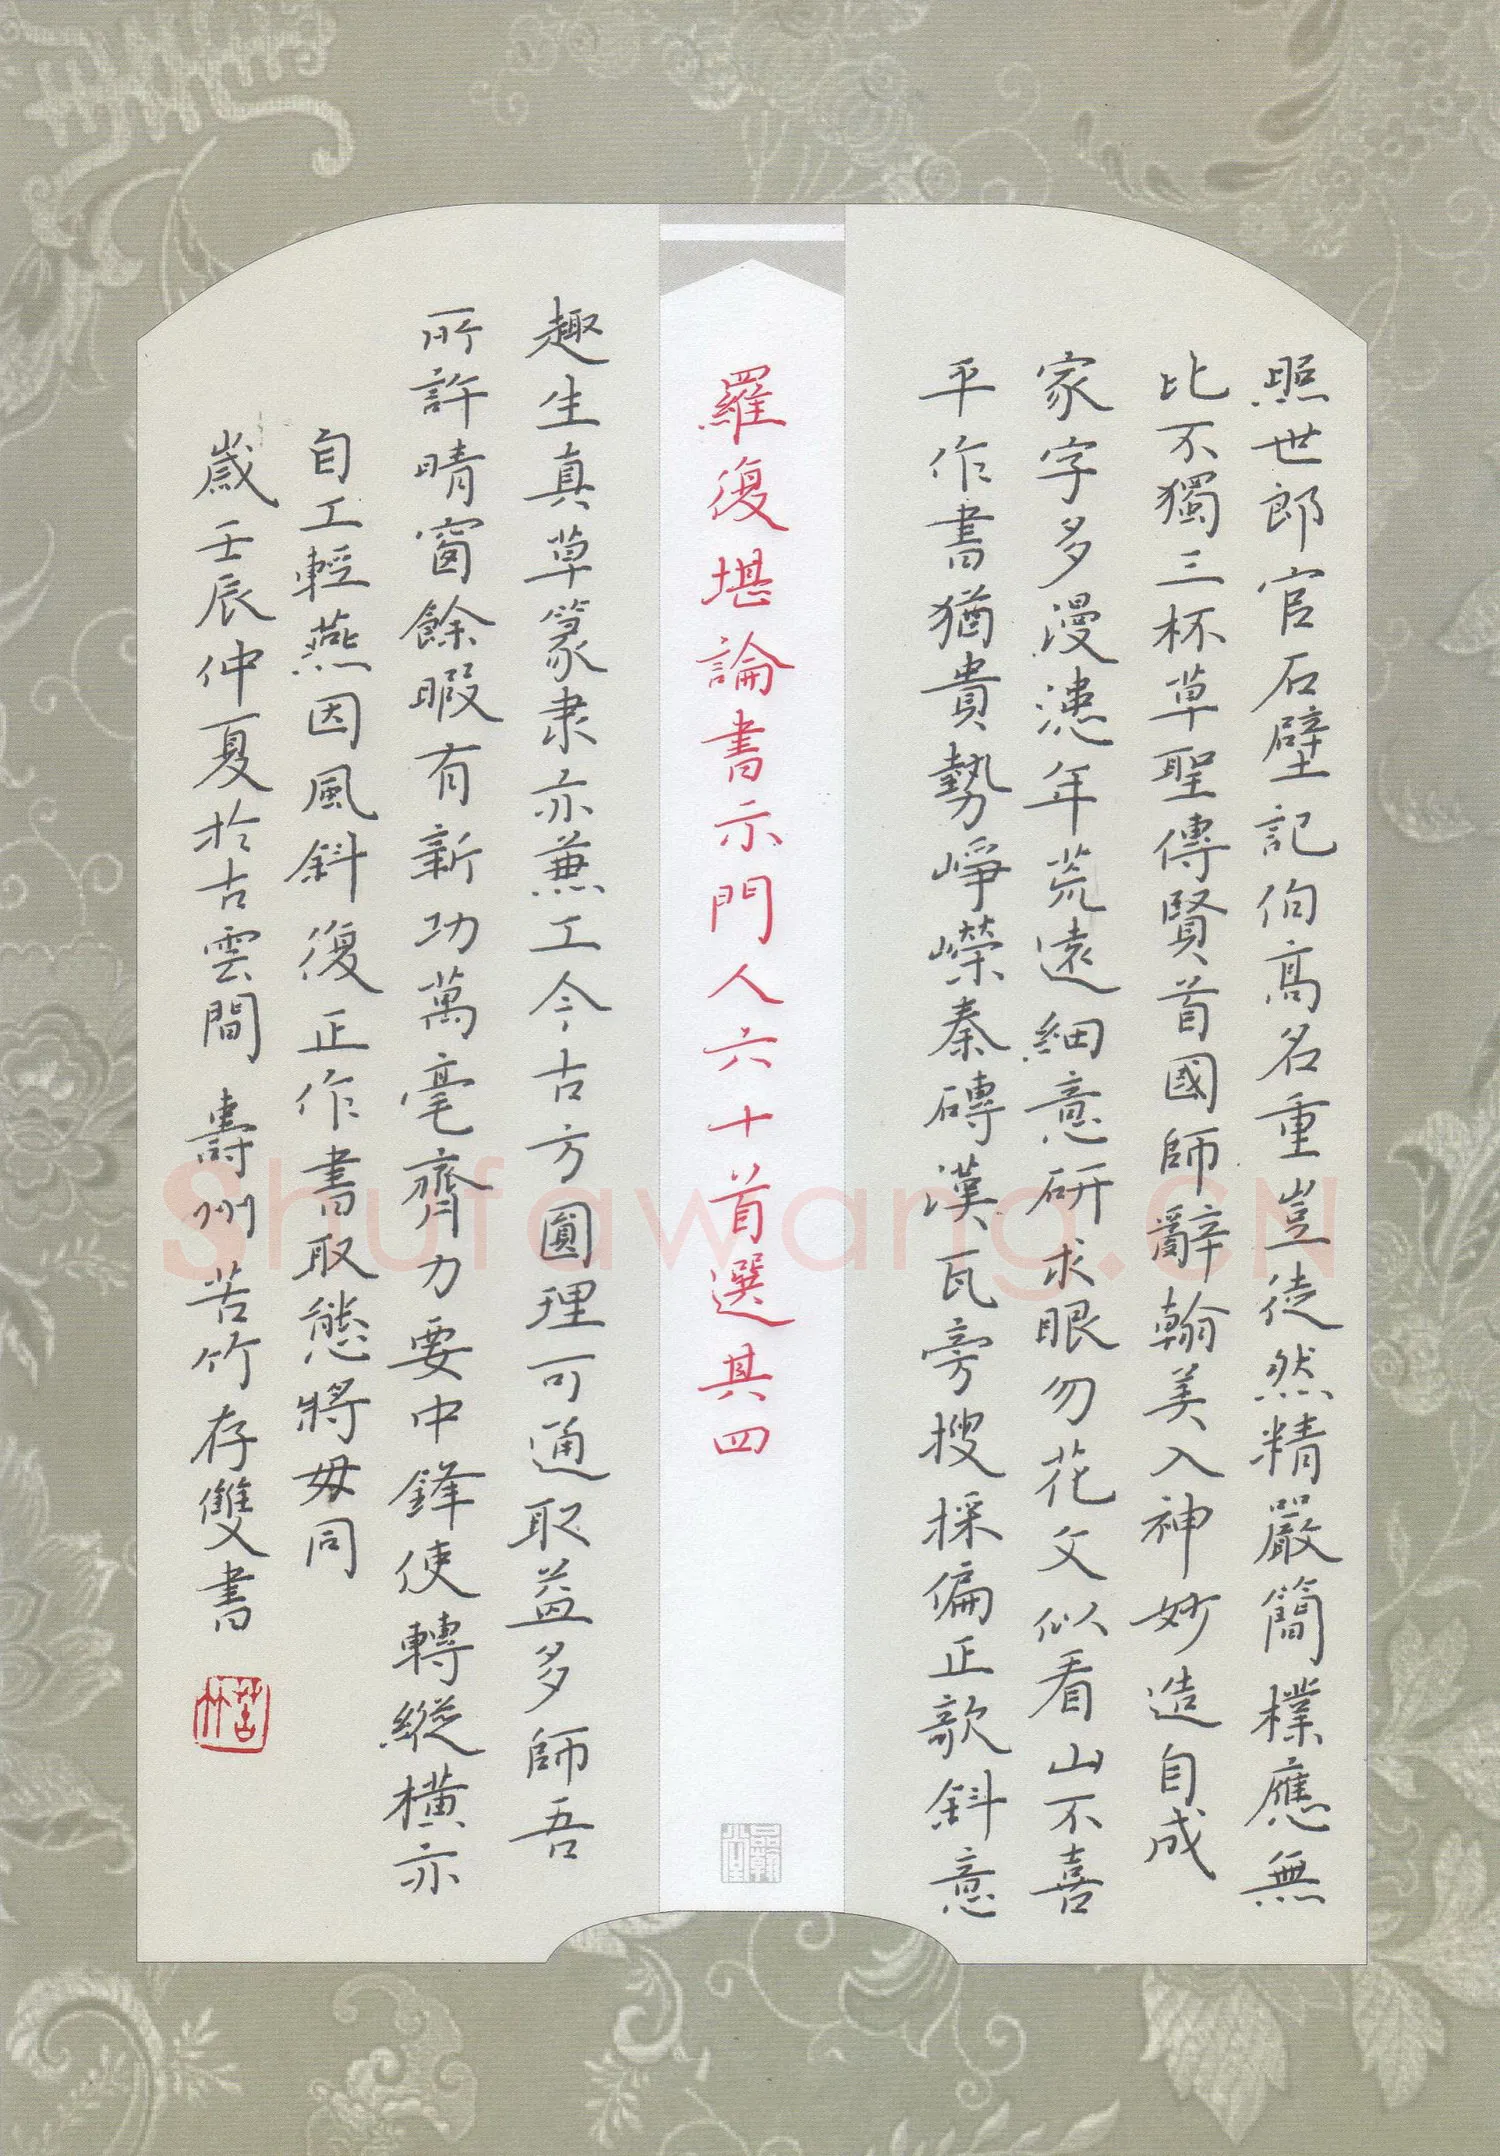 照世郎官石壁記伯高名重豈徒然精嚴簡樸應無
比不獨三杯草聖傳賢首國師辭翰美入神妙造自成
家字多漫漶年荒遠細意研求眼勿花文似看山不喜
平作書猶貴勢崢嶸秦磚漢瓦旁搜採偏正欹斜意
羅復堪論書示門人六十首選其四
趣生真草篆隸亦兼工今古方圓理可通取益多師吾
所許晴窗餘暇有新功萬毫齊力要中鋒使轉縱橫亦
自工輕燕因風斜復正作書取態將毋同
歲壬辰仲夏於古雲間 壽州 苦竹存雙書
苦竹
Shufawang.CN